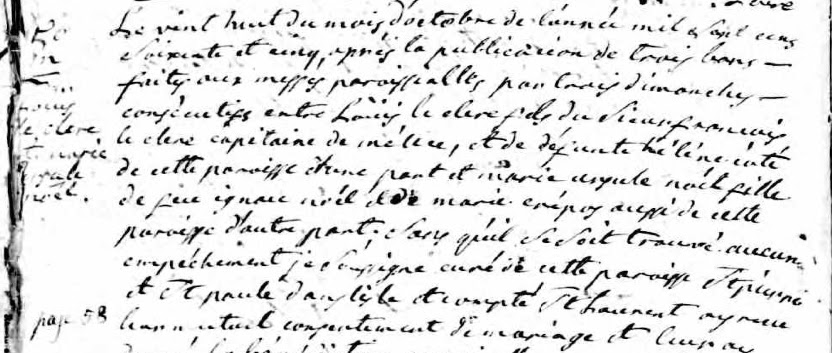 Le vint huit du mois d'octobre de l'année mil sept cens
soixente et cinq, après la publication de trois bans
faites aux messes paroissialles par trois dimanches
consécutifs entre Loüis le clerc fils du Sieur francois
le clerc capitaine de milice, et de défunte héléne côté
de cette paroisse d'une part et marie ursule noël fille
de feu ignace noël et de marie crépos aussi de cette
paroisse d'autre part. Sans qu'il se soit trouvé aucun
empéchement je Soussigné curé de cette paroisse St pierre
et St paul d'an l'isle et comté St Laurent ay reçu
leur mutuel consentement de mariage et leur ay
Loüis
le clerc
et marie
ursule
noël.
page 58